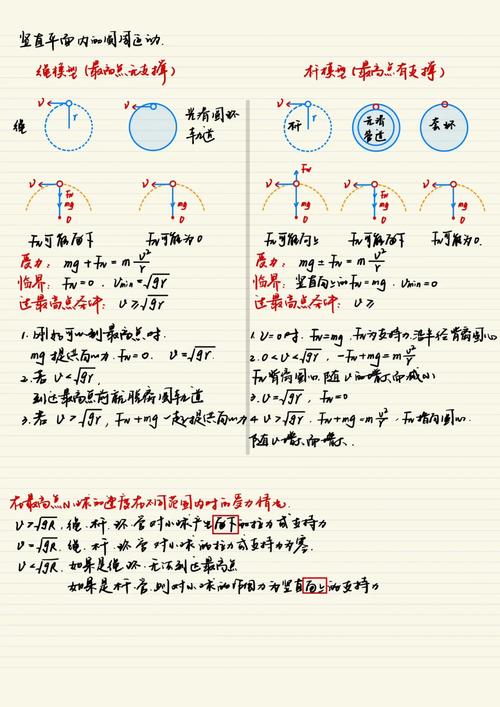 竖直平面内的圆周运动.
绳模型(最高点无支撑)
v r
绳
v
光滑圆环
轨道
v F_N mg O
v mg O
F_N可能向下 F_N可能为0
受力: mg + F_N = m v²/r
临界: F_N = 0. v_min = √gr
过最高点条件: v ≥ √gr
1. 刚好可以到最高点时.
mg 提供向心力. F_N = 0. v = √gr.
2. 若 v < √gr.
到达最高点前就脱离圆轨道
3. 若 v > √gr, F_N + mg 一起提供向心力
杆模型(最高点有支撑)
v r
杆 光滑管道 套环
v F_N mg O
v F_N mg O
v mg O
F_N可能向上 F_N可能向下 F_N可能为0.
受力: mg ± F_N = m v²/r
临界: 竖直向上的F_N = mg. v_min = 0
过最高点条件: v ≥
1. v = 0时. F_N = mg. F_N为支持力. 沿半径背离圆心
2. 0 < v < √gr, -F_N + mg = m v²/r
F_N背离圆心. 随v的增大而减小
3. v = √gr, F_N = 0
4 v > √gr. F_N + mg = m v²/r. F_N指向圆心
F随v增大而增大.
在最高点N.小球的速度在不同范围内时的受力情况.
v > √gR. 绳. 杆. 环. 管对小球产生向下的拉力或支持力
v = √gR. 绳. 杆. 环. 管对小球的拉力或支持力为零.
v < √gR. 如果是绳.环.无法到达最高点
如果是杆.管.则对小球的作用力为竖直向上的支持力